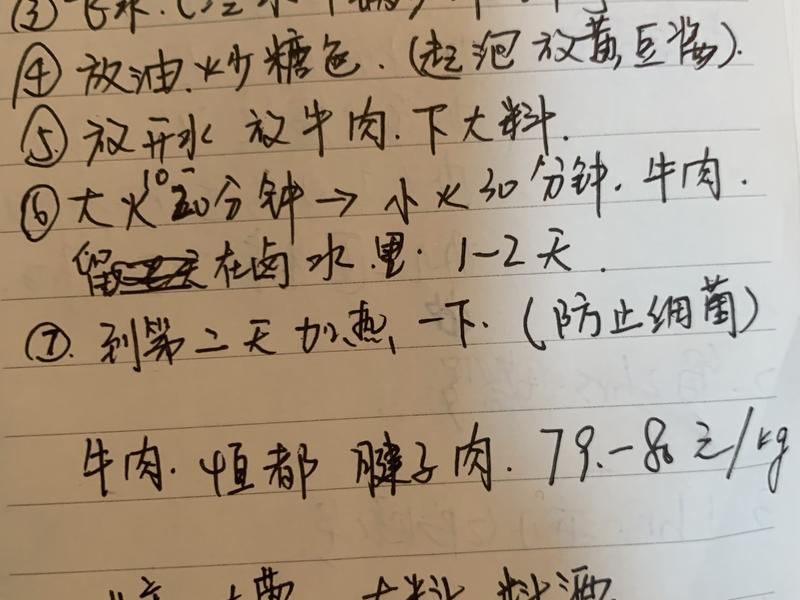 ③飞水.
④放油.炒糖色.(起泡放黄豆酱).
⑤放开水 放牛肉.下大料.
⑥大火10-20分钟→小火30分钟.牛肉.
留在卤水里.1-2天.
⑦.到第二天加热一下.(防止细菌)
牛肉.恒都 腱子肉.79.-80元/kg
大料 料酒